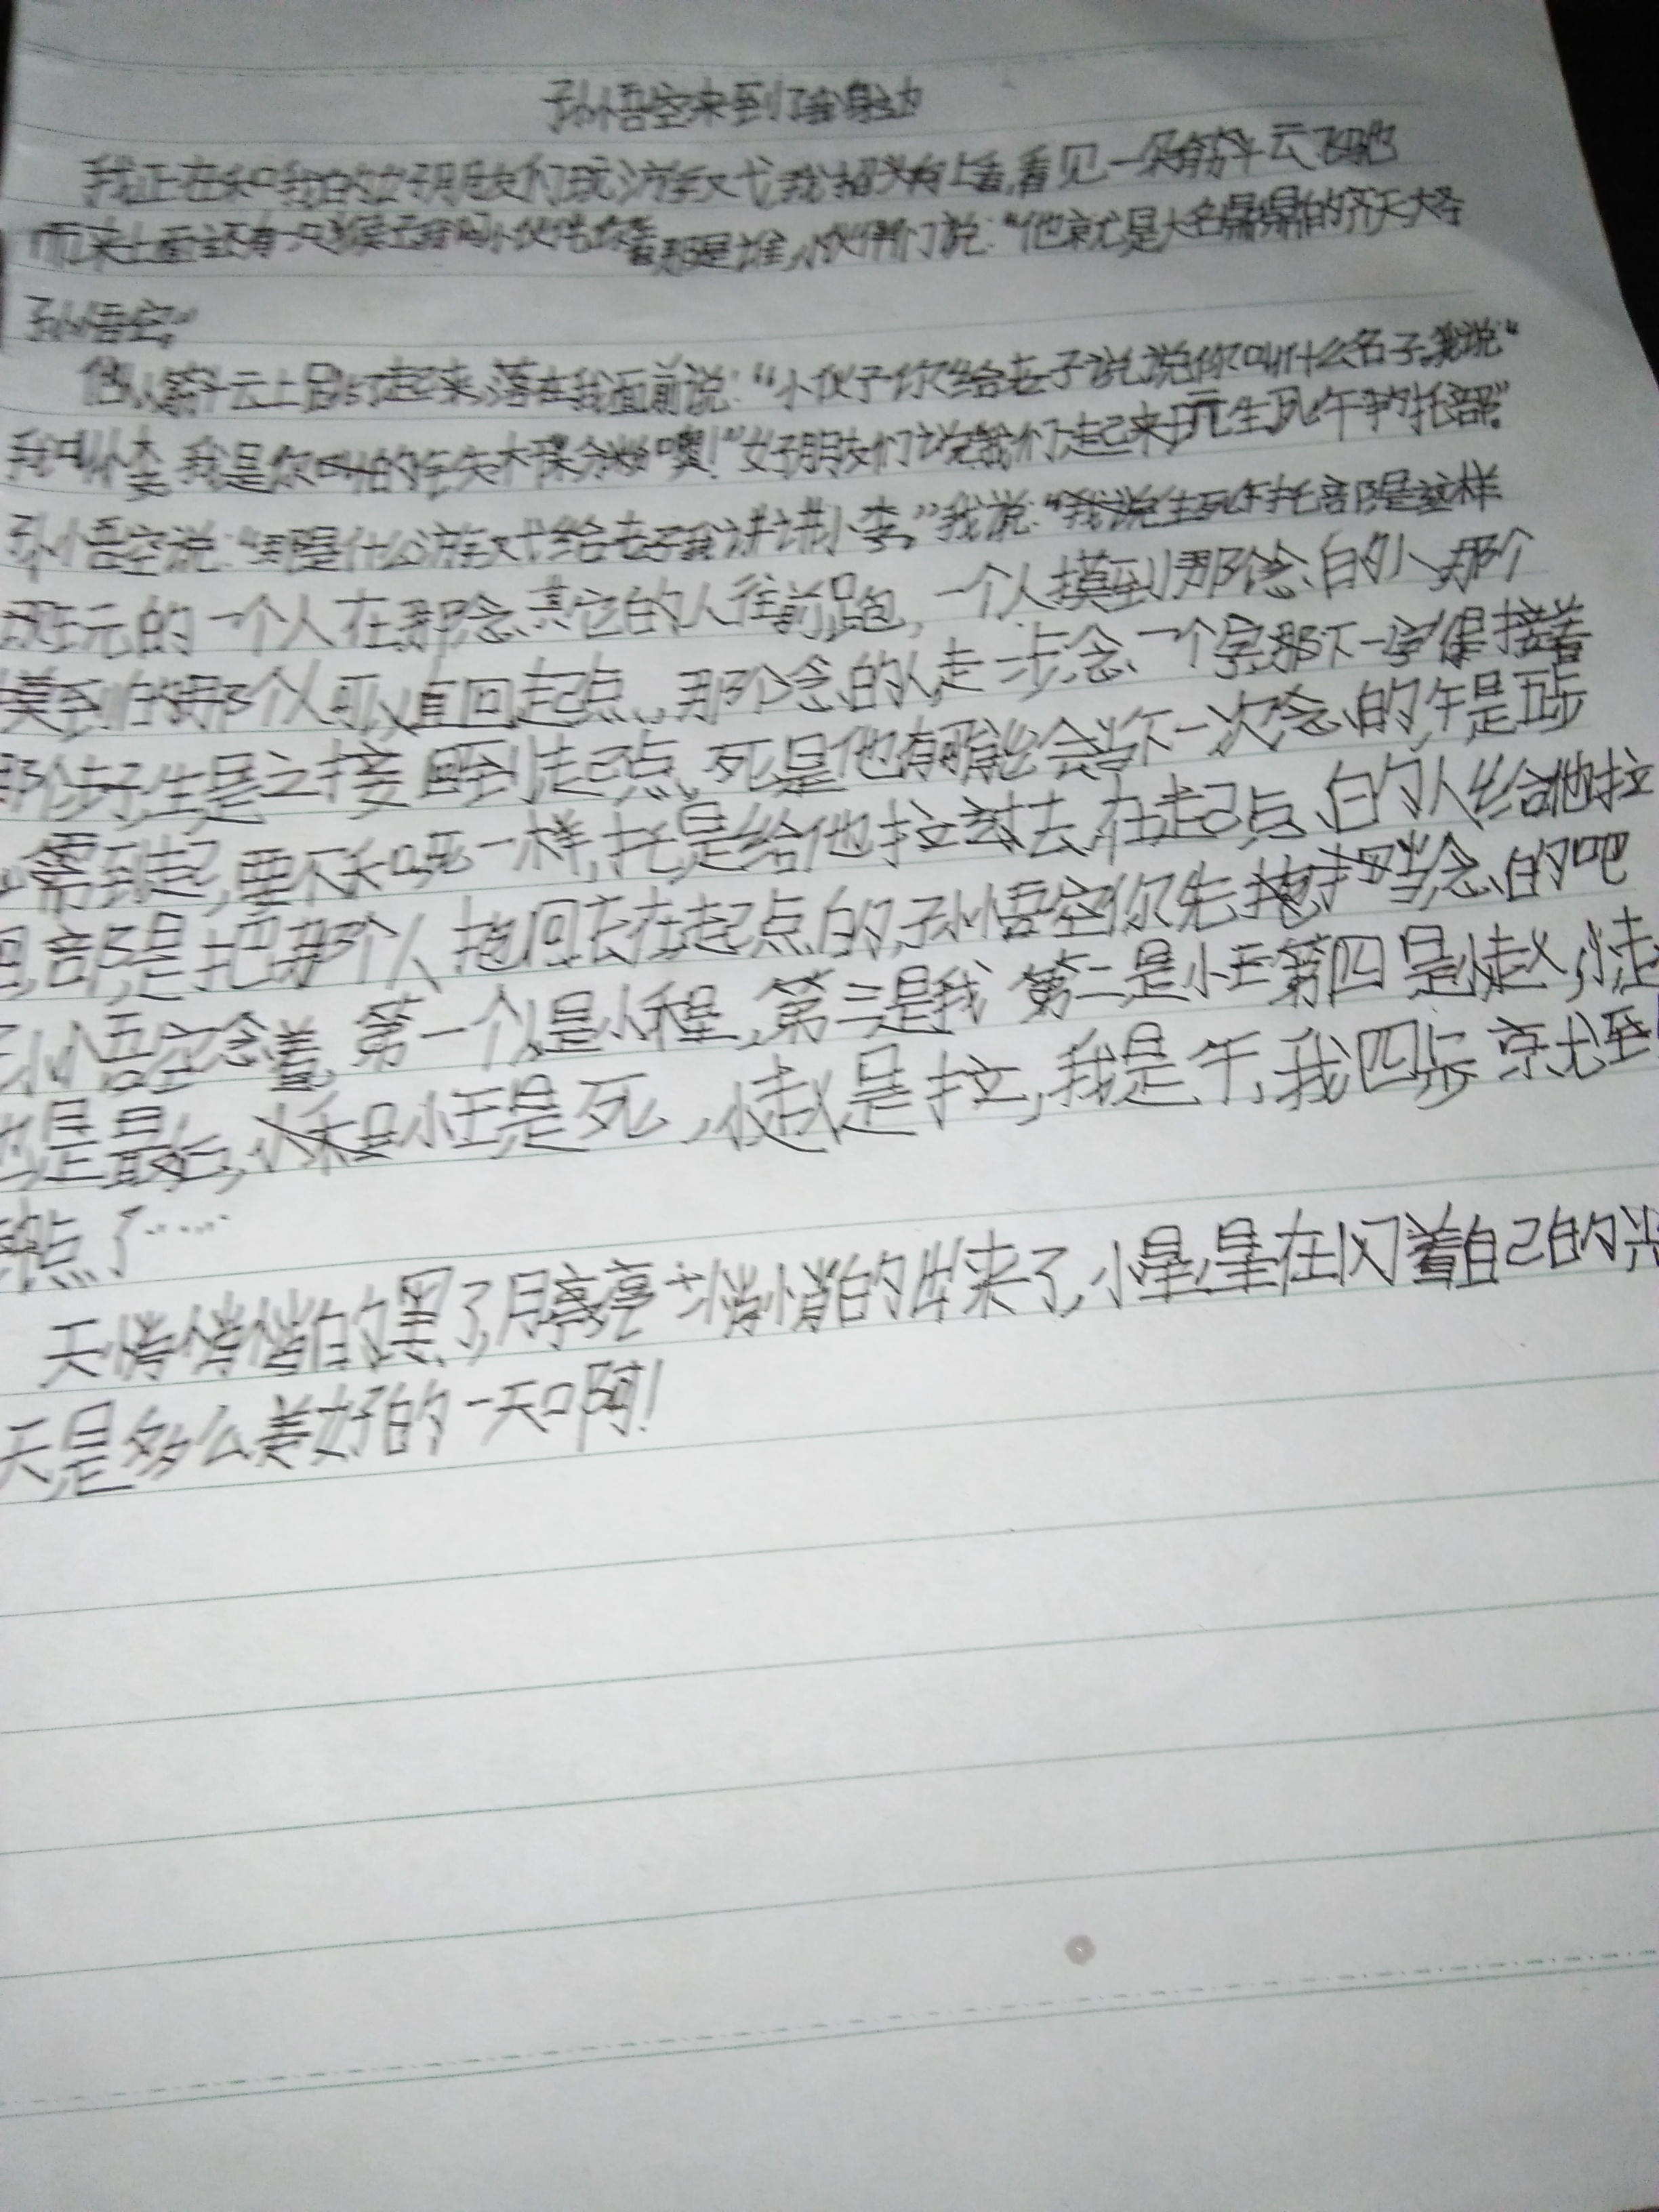 孙悟空来到了我身边
我正在和我的好朋友们玩游戏我抬头向上看,看见一朵筋斗云飞驰
而来上面还有一只猴子我问小伙伴你看那是谁,小伙伴们说:“他就是大名鼎鼎的齐天大圣
孙悟空。”
他从筋斗云上跳了起来,落在我面前说:“小伙子你给老子说说你叫什么名子,我说“
我叫小李,我是你的噢!”好朋友们说我们一起来玩生死午托部。”
孙悟空说:“那是什么游戏给老子我讲讲小李,”我说:“我说生死午托部是这样
玩的一个人在那念,其它的人往前跑,一个人摸到那念的人那个
摸到的那个人可以直回起点,那个念的人走一步念一个字,那下一字谁接着
生是之接回到起点,死是他有可能会当下一次念的,午是五步
需到起,要不和死一样,托是给他拉过去,在起点的人给他拉
回,部是把那个人抱回在起点的,孙悟空你先当念的吧
孙悟空念着,第一个人是小程,第三是我 第二是小王第四是小赵,
是最后,小和小王是死,小赵是拉,我是午,我四步就到
点了……
天悄悄悄的黑了,月亮也悄悄的出来了,小星星在闪着自己的光
天是多么美好的一天啊!